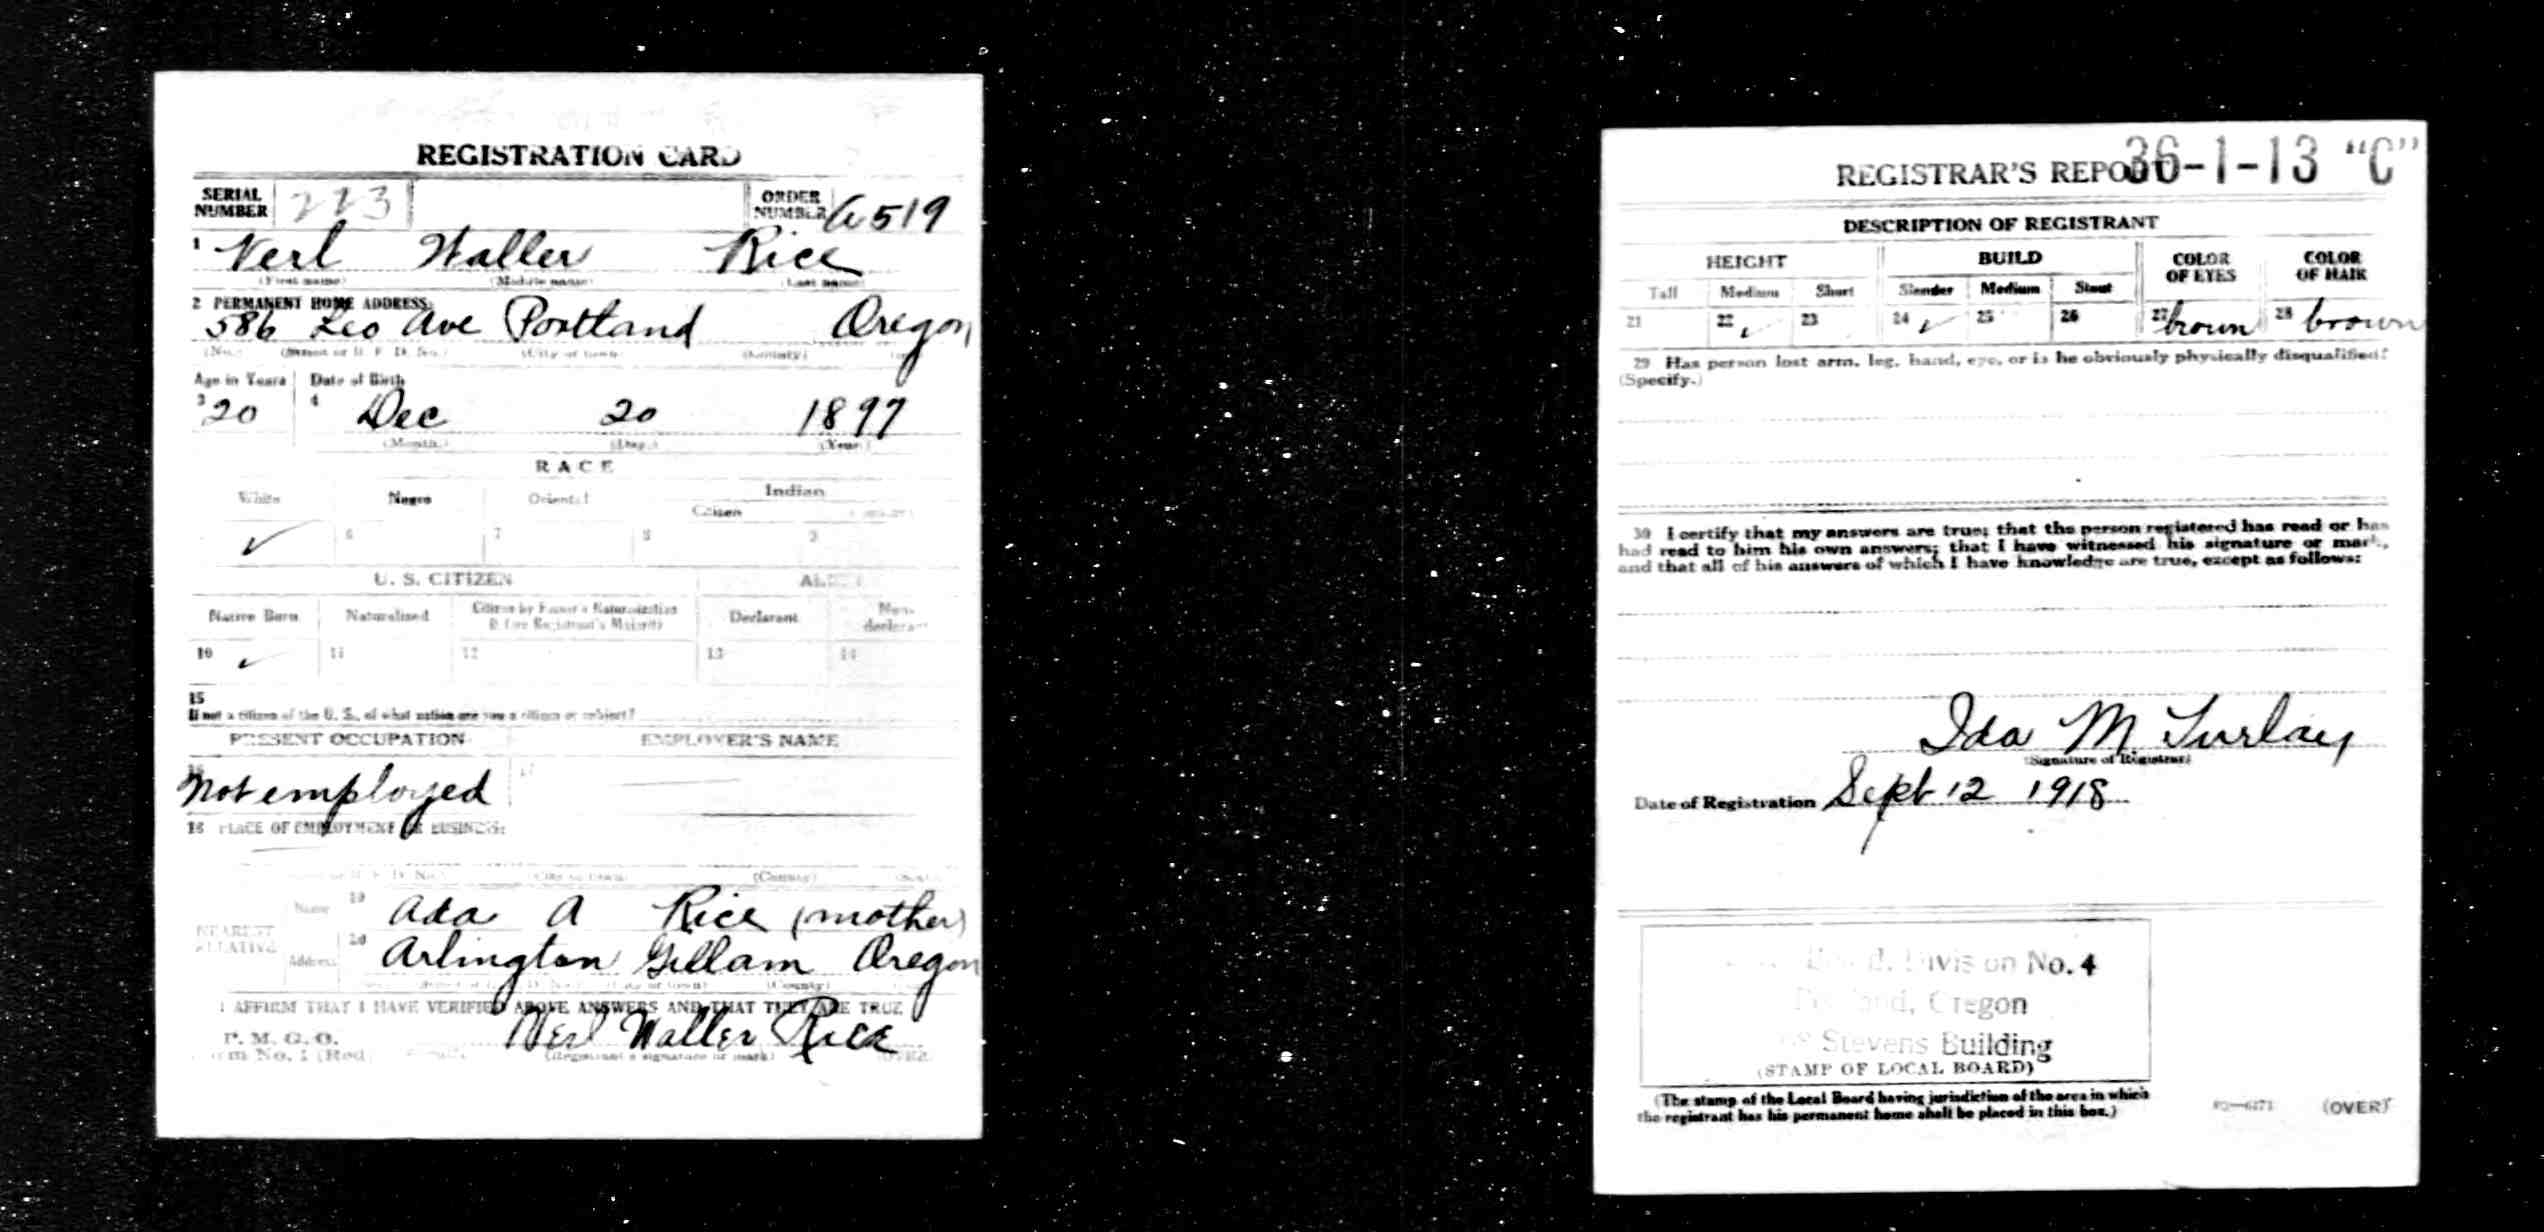 REGISTRATION CARD
SERIAL NUMBER 223 ORDER NUMBER A519
1 Verl Waller Rice
(First name) (Middle name) (Last name)
2 PERMANENT HOME ADDRESS:
586 Leo Ave Portland Oregon
(No.) (Street or R. F. D. No.) (City or town) (County)
Age in Years Date of Birth
3 20 4 Dec 20 1897
(Month.) (Day.) (Year.)
RACE
White Negro Oriental Indian
Citizen
✓ 6 7 8 9
U. S. CITIZEN
Native Born Naturalized Citizen by Father's Naturalization Before Registrant's Majority Declarant Non-declarant
10 ✓ 11 12 13 14
15
If not a citizen of the U. S., of what nation are you a citizen or subject?
PRESENT OCCUPATION EMPLOYER'S NAME
16 Not employed 17
18 PLACE OF EMPLOYMENT OR BUSINESS:
(City or town) (County)
NEAREST RELATIVE Name 19 Ada A Rice (mother)
Address 20 Arlington Gillam Oregon
(County)
I AFFIRM THAT I HAVE VERIFIED ABOVE ANSWERS AND THAT THEY ARE TRUE
P. M. G. O.
Form No. 1 (Red) Verl Waller Rice
(Registrant's signature or mark) (OVER)
REGISTRAR'S REPORT 36-1-13 "C"
DESCRIPTION OF REGISTRANT
HEIGHT BUILD COLOR OF EYES COLOR OF HAIR
Tall Medium Short Slender Medium Stout
21 22 ✓ 23 24 ✓ 25 26 27 brown 28 brown
29 Has person lost arm, leg, hand, eye, or is he obviously physically disqualified?
(Specify.)
30 I certify that my answers are true; that the person registered has read or has
had read to him his own answers; that I have witnessed his signature or mark,
and that all of his answers of which I have knowledge are true, except as follows:
Ida M. Turlay
(Signature of Registrar)
Date of Registration Sept 12 1918
Board, Division No. 4
Portland, Oregon
Stevens Building
(STAMP OF LOCAL BOARD)
(The stamp of the Local Board having jurisdiction of the area in which
the registrant has his permanent home shall be placed in this box.)
(OVER)